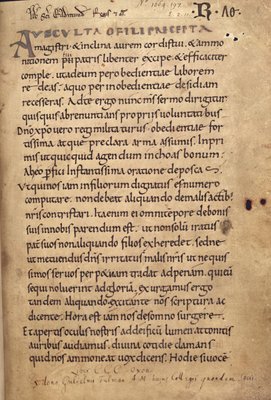 B. Λο.
AUSCULTA OFILI PRECEPTA
magistri · & inclina aurem cordis tui · & ammo
nitionem pii patris libenter excipe · & efficaciter
comple · ut ad eum per obedientiae laborem
redeas · a quo per inobedientiae desidiam
recesseras. Ad te ergo nunc mi sermo dirigitur
quisquis abrenuntians propriis voluntatibus
Dño xp̄o vero regi militaturus obedientiae for
tissima atque preclara arma assumis. Inprimis
ut quicquid agendum inchoas bonum ·
Ab eo p̄fici instantissima oratione deposcas ·
Ut qui nos iam in filiorum dignatus est numero
computare · non debeat aliquando de malis actib;
nris contristari. Ita enim ei omni tepore de bonis
suis in nobis parendum est · ut non solū iratus
pat̄ suos non aliquando filios exheredet · sed ne
ut metuendus dn̄s irritatus malis nris ut nequis
simos servos perpetuam tradat ad penam · qui eū
sequi noluerint ad gloriā. Exurgamus ergo
tandem aliquando excitante nos scriptura ac
dicente · Hora est iam nos de somno surgere ·
Et apertis oculis nostris ad deificū lumen · attonitis
auribus audiamus · divina cotidie clamans
quid nos ammoneat vox dicens · Hodie si vocē
Liber C.C.C. Oxon.